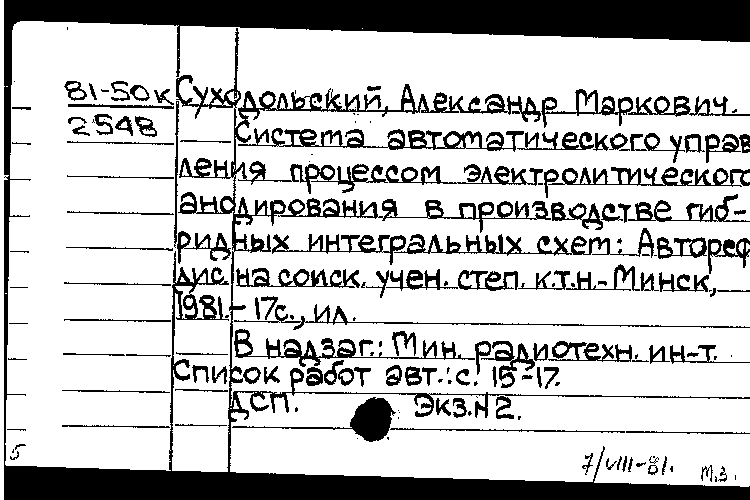 81-50к Суходольский, Александр Маркович.
2548 Система автоматического управ
ления процессом электролитического
анодирования в производстве гиб-
ридных интегральных схем: Автореф
дис. на соиск. учен. степ. к.т.н.-Минск,
1981.- 17с., ил.
В надзаг.: Мин. радиотехн. ин-т.
Список работ авт.: с. 15-17.
ДСП. Экз.N2.
5 7/VIII-81. м.з.